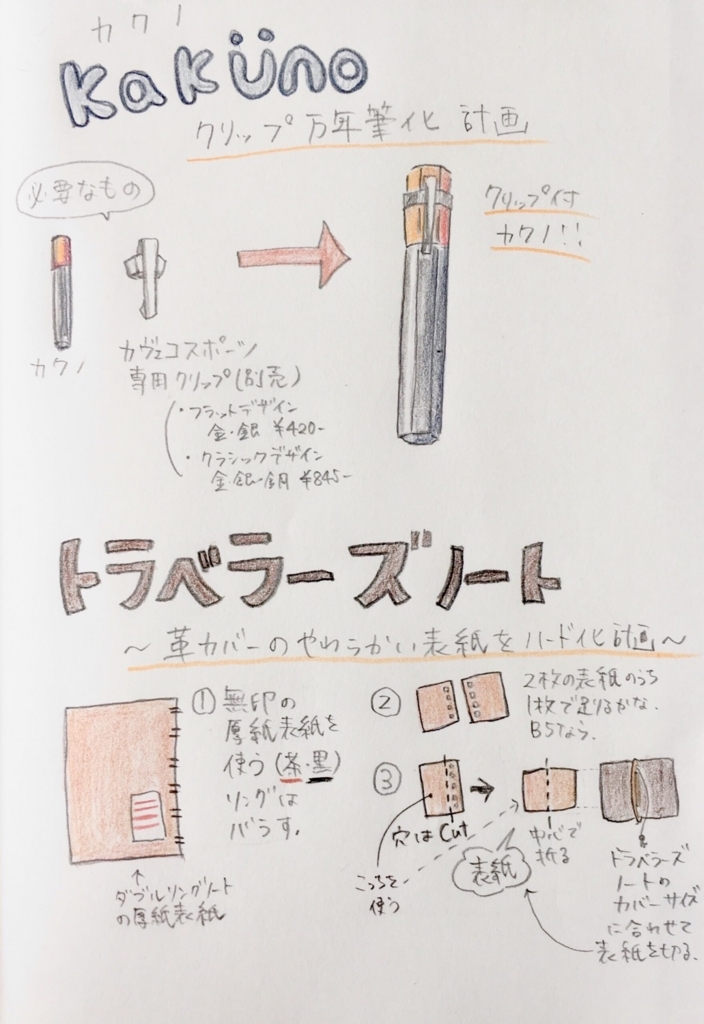 カクノ
Kaküno
クリップ万年筆化計画
必要なもの
カクノ
カヴェコスポーツ
専用クリップ(別売)
・フラットデザイン
金・銀 ¥420-
・クラシックデザイン
金・銀・銅 ¥845-
クリップ付
カクノ!!
トラベラーズノート
~革カバーのやわらかい表紙をハード化計画~
①無印の
厚紙表紙を
使う(茶・黒)
リングは
バラす。
↑
ダブルリングノート
の厚紙表紙
②
2枚の表紙のうち
1枚で足りるかな。
B5なら。
③
穴はCut
こっちを
使う
中心で
折る
表紙
トラベラーズ
ノートの
カバーサイズ
に合わせて
表紙を切る。